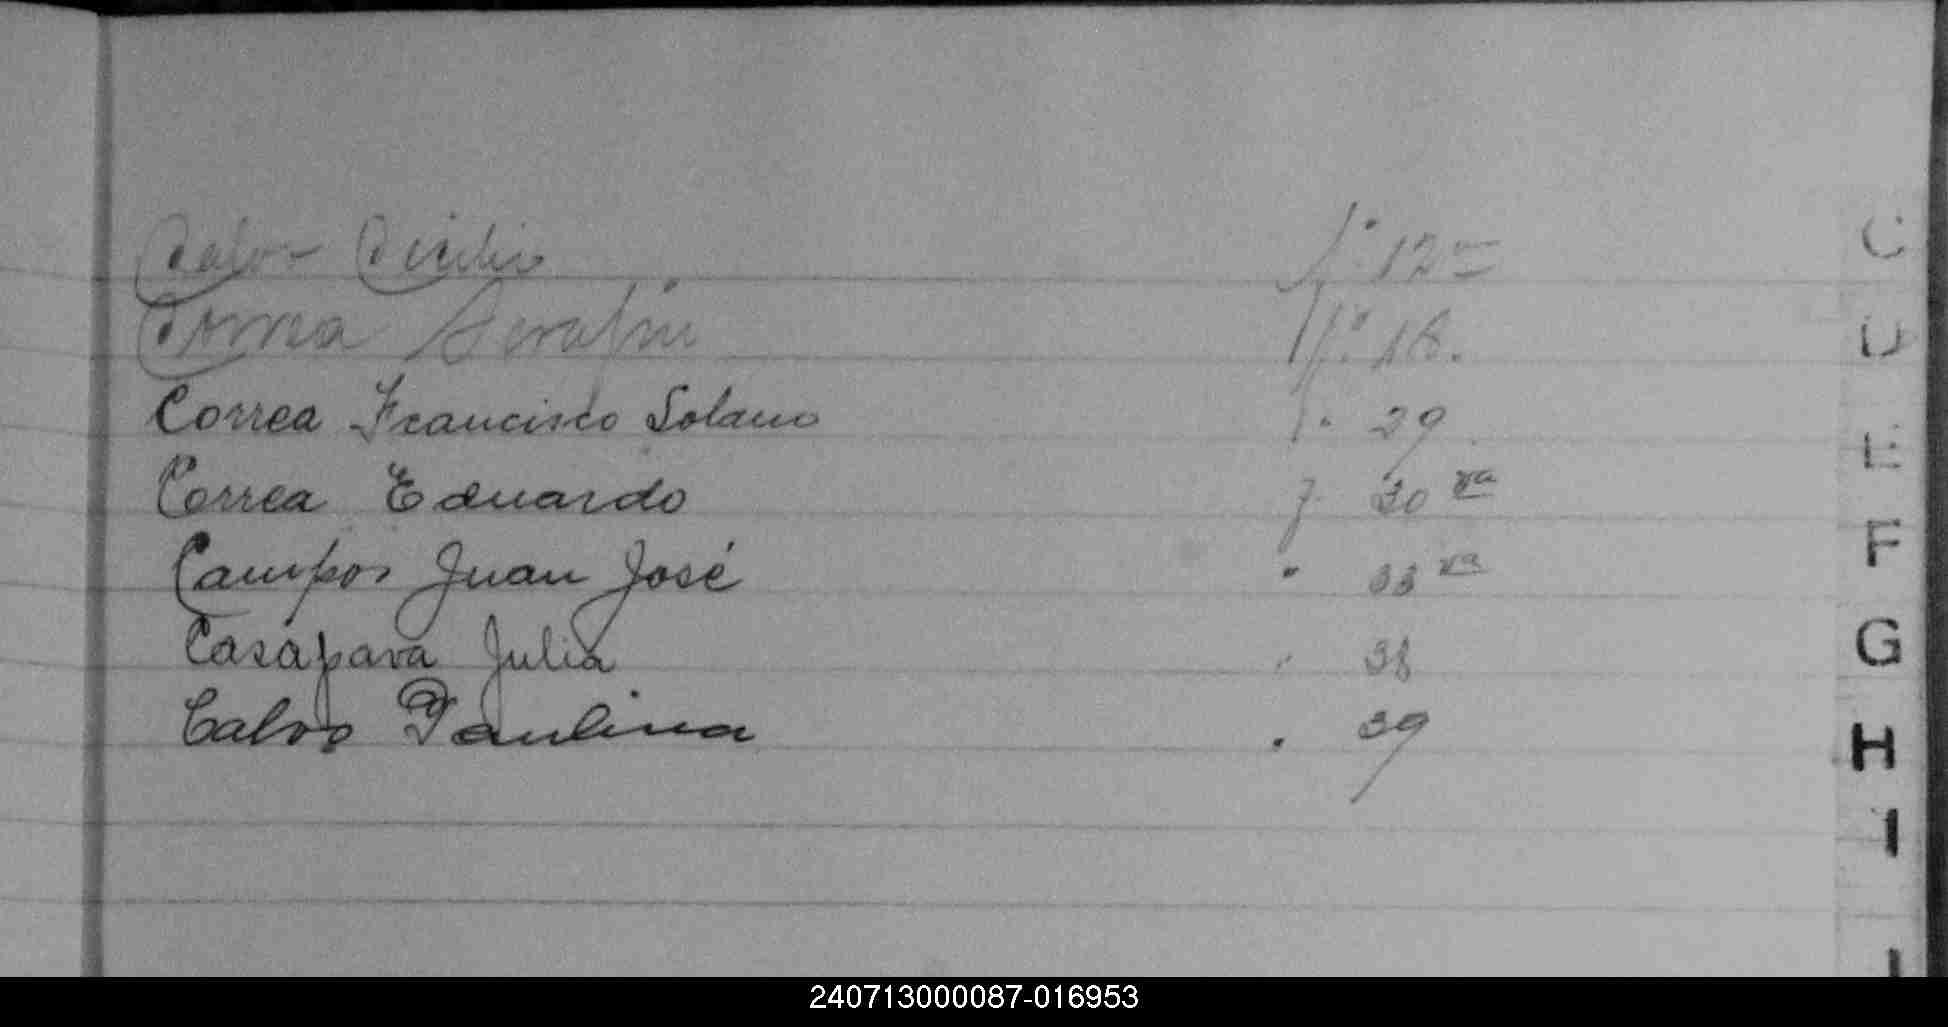 Calvo Cecilio fº 12 vº
Correa Serafin fº 18.
Correa Francisco Solano " 29
Correa Eduardo f. 30 vta
Campos Juan José " 33 vta
Casapava Julia " 38
Calvo Paulina " 39
C
D
E
F
G
H
I
240713000087-016953